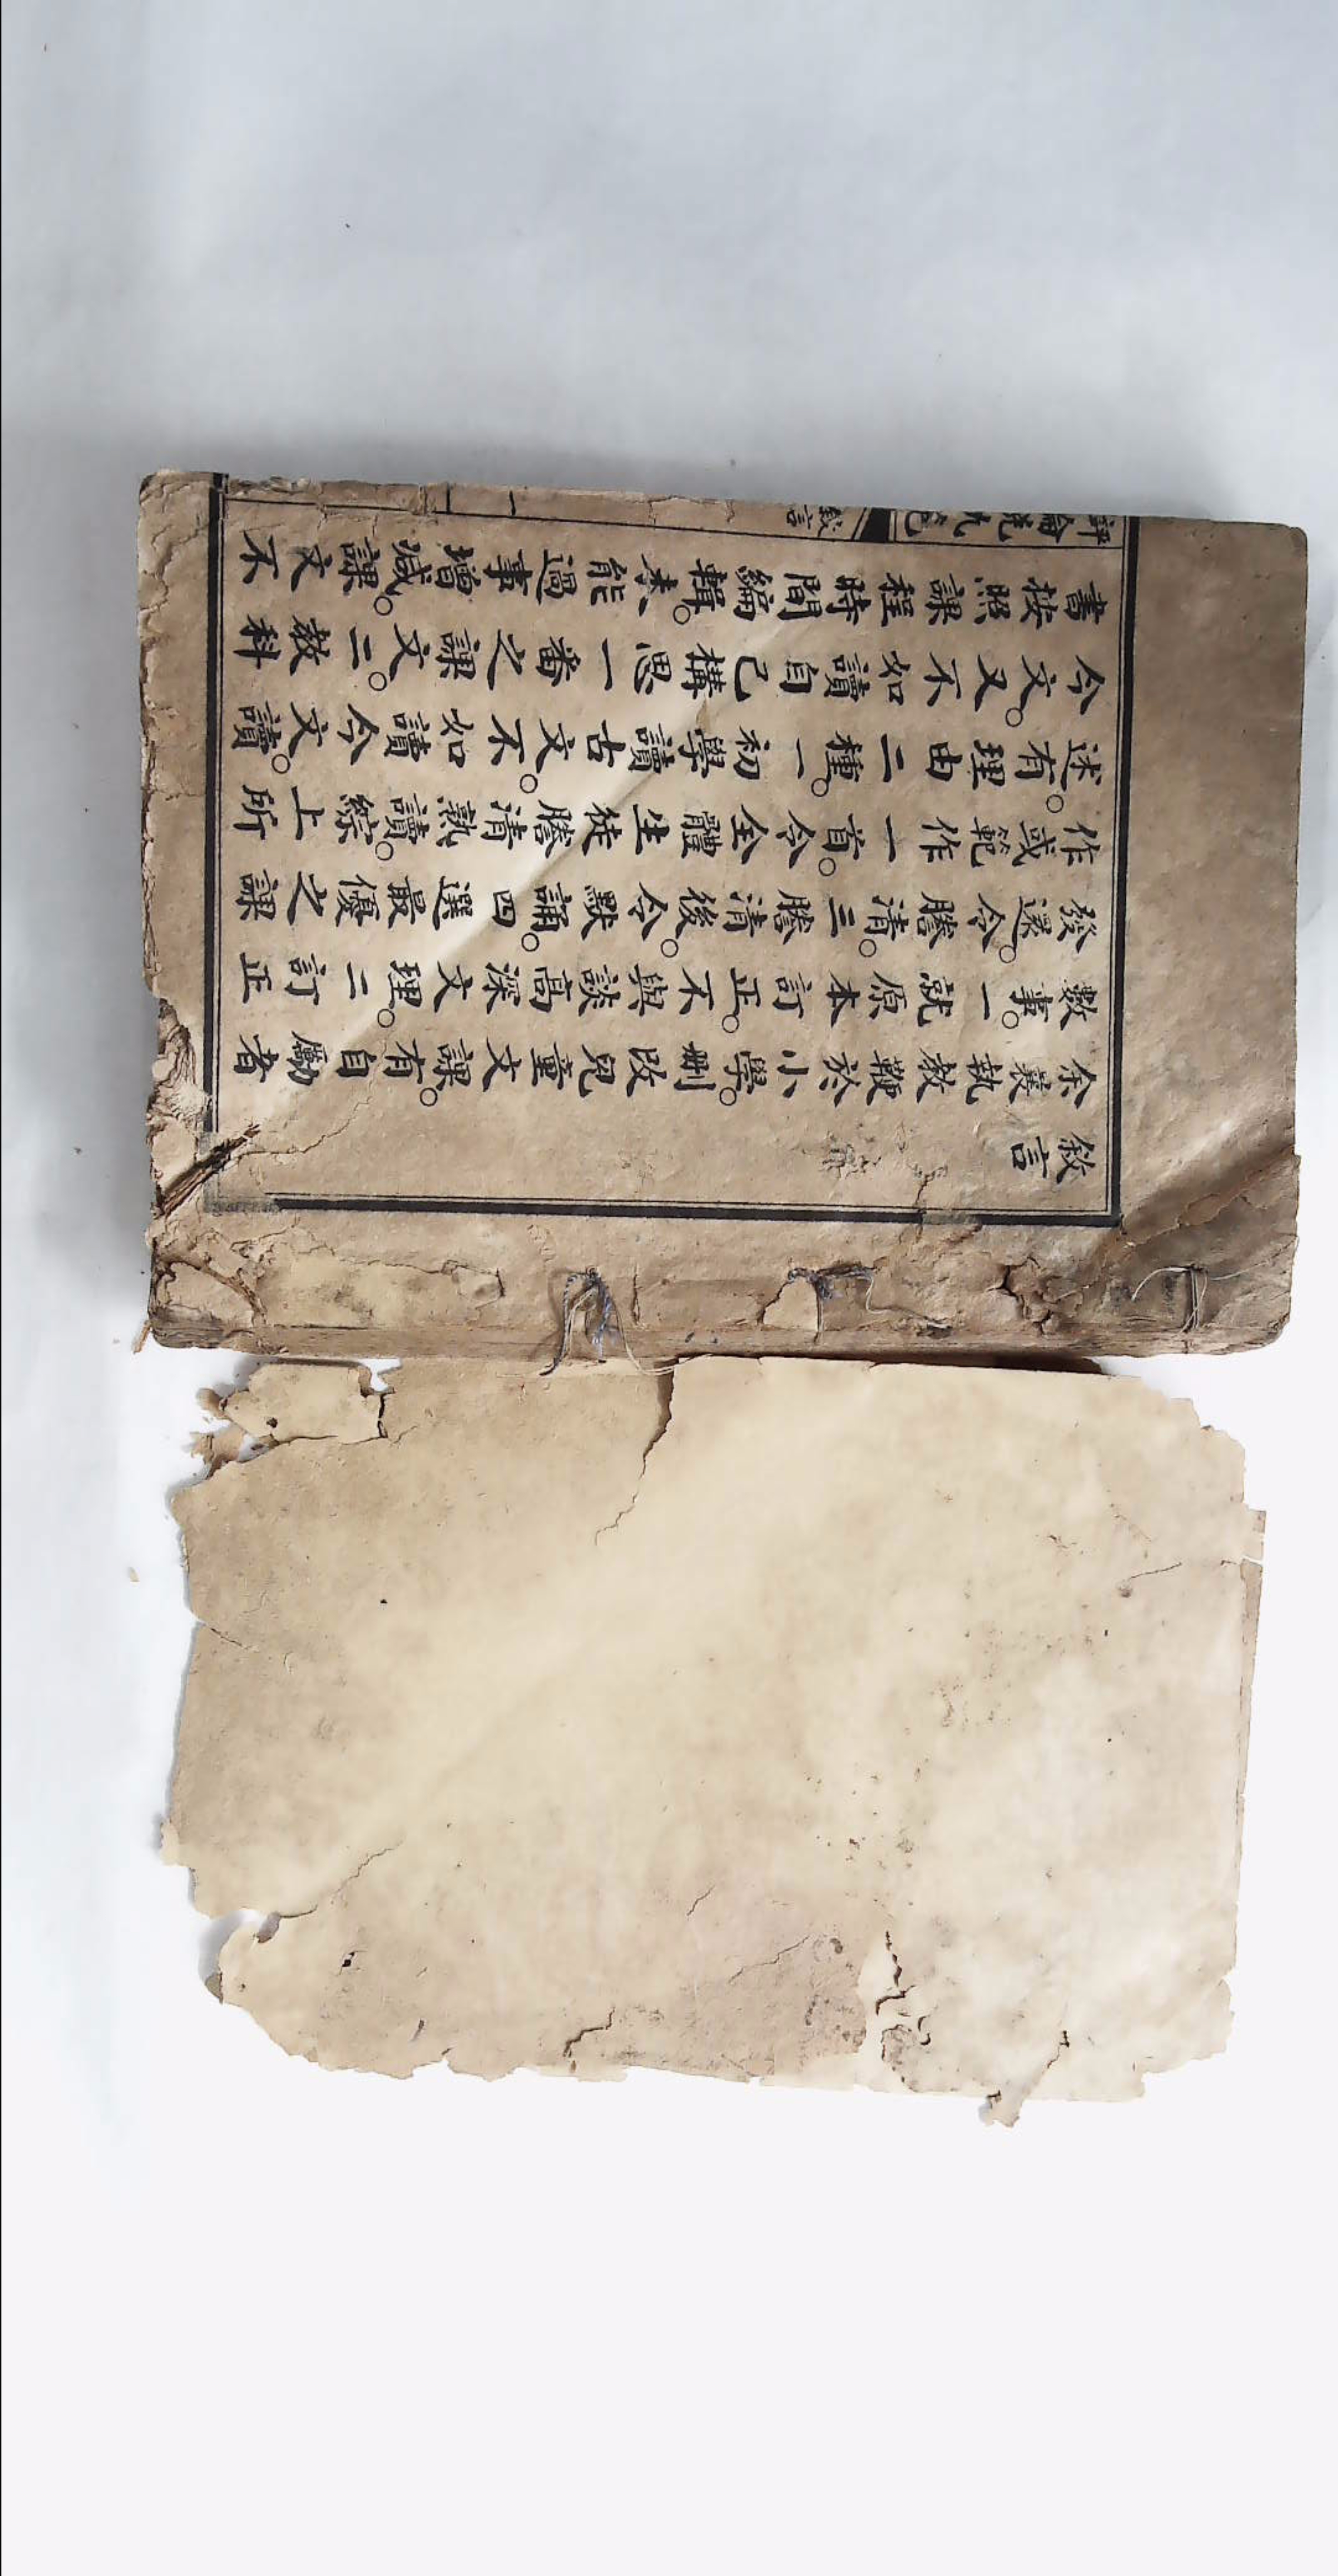 敘言
余曩執教鞭於小學。刪改兒童文課。有自勵者
數事。一就原本訂正。不與談高深文理。二訂正
發還。令謄清。三謄清後。令默誦。四選最優之課
作或範作一首。令全體生徒謄清熟讀。綜上所
述。有理由二種。一初學讀古文。不如讀今文。讀
今文。又不如讀自己構思一番之課文。二教科
書按照課程時間編輯。未能過事增減。課文不
敘言
一